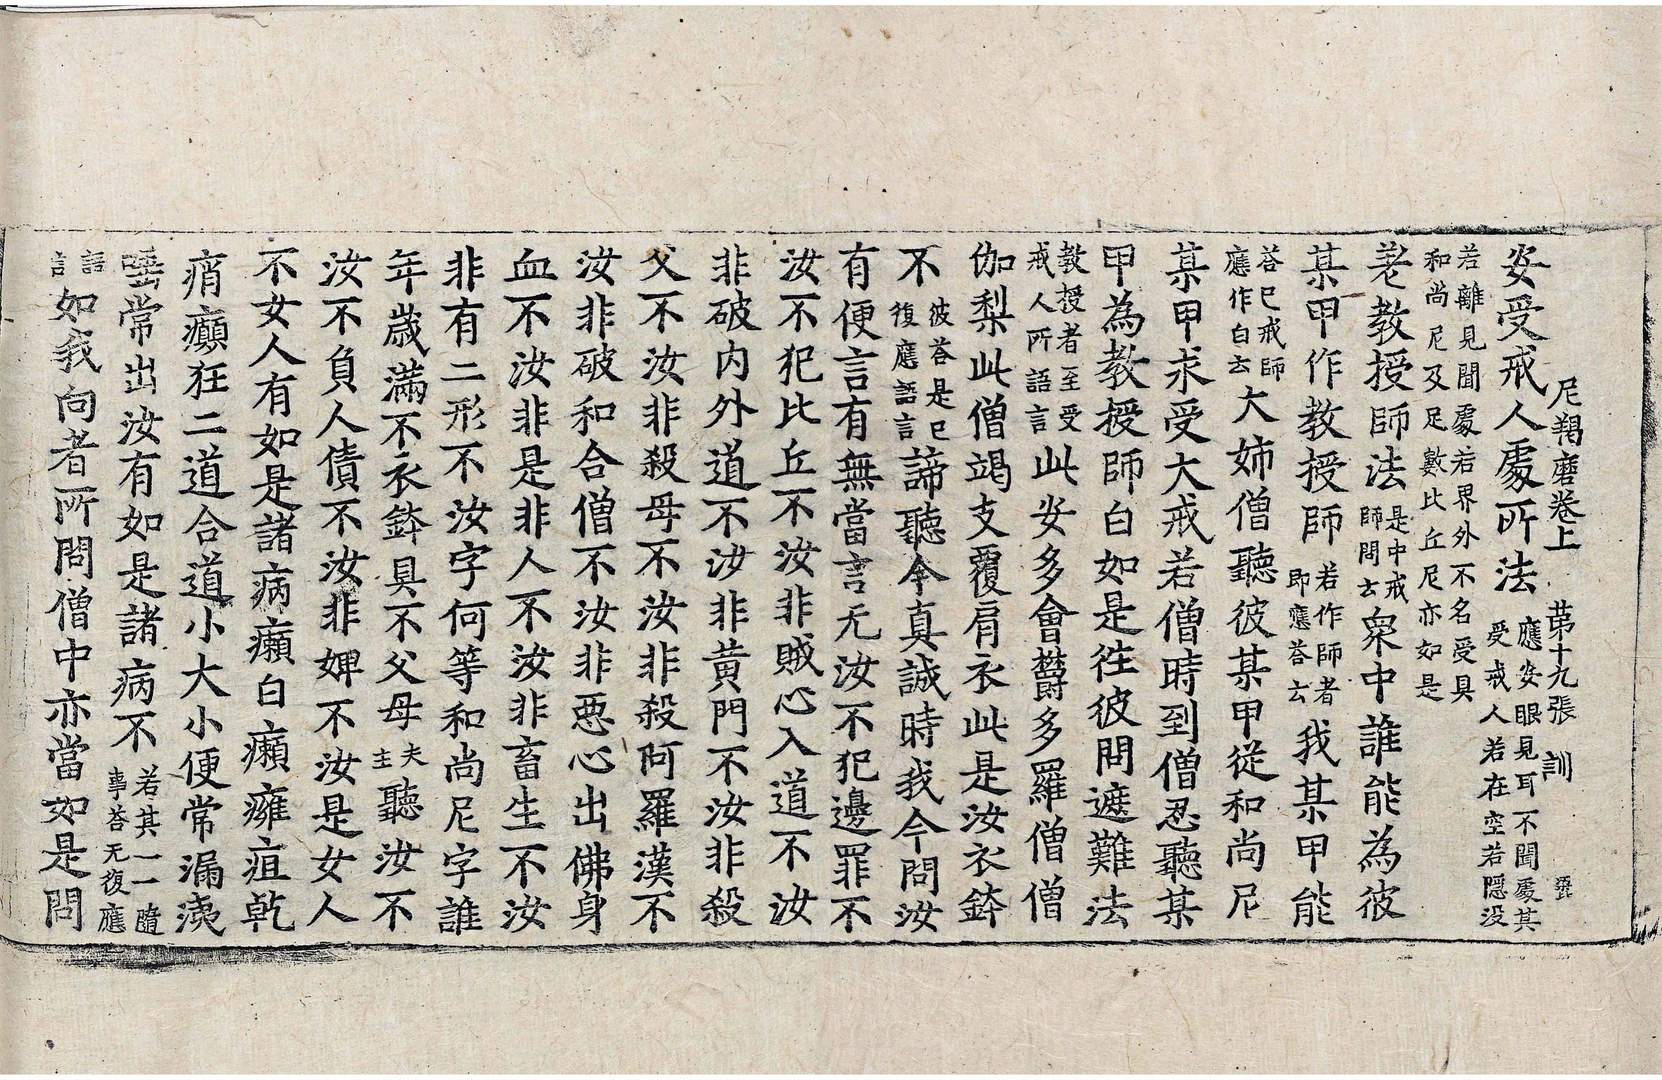 尼羯磨卷上　第十九張　訓
安受戒人處所法應安眼見耳不聞處其受戒人若在空若隱没
若離見聞處若界外不名受具和尚尼及足數比丘尼亦如是
差教授師法是中戒師問云眾中誰能為彼
某甲作教授師若作師者即應荅云我某甲能
荅已戒師應作白云大姊僧聽彼某甲從和尚尼
某甲求受大戒若僧時到僧忍聽某
甲為教授師白如是往彼問遮難法
教授者至受戒人所語言此安多會欝多羅僧僧
伽梨此僧竭支覆肩衣此是汝衣鉢
不彼荅是已復應語言諦聽今真誠時我今問汝
有便言有無當言无汝不犯邊罪不
汝不犯比丘不汝非賊心入道不汝
非破内外道不汝非黄門不汝非殺
父不汝非殺母不汝非殺阿羅漢不
汝非破和合僧不汝非惡心出佛身
血不汝非是非人不汝非畜生不汝
非有二形不汝字何等和尚尼字誰
年歲滿不衣鉢具不父母夫主聽汝不
汝不負人債不汝非婢不汝是女人
不女人有如是諸病癩白癩癰疽乾
痟癲狂二道合道小大小便常漏洟
唾常出汝有如是諸病不若其一一隨事荅无復應
語言如我向者所問僧中亦當如是問